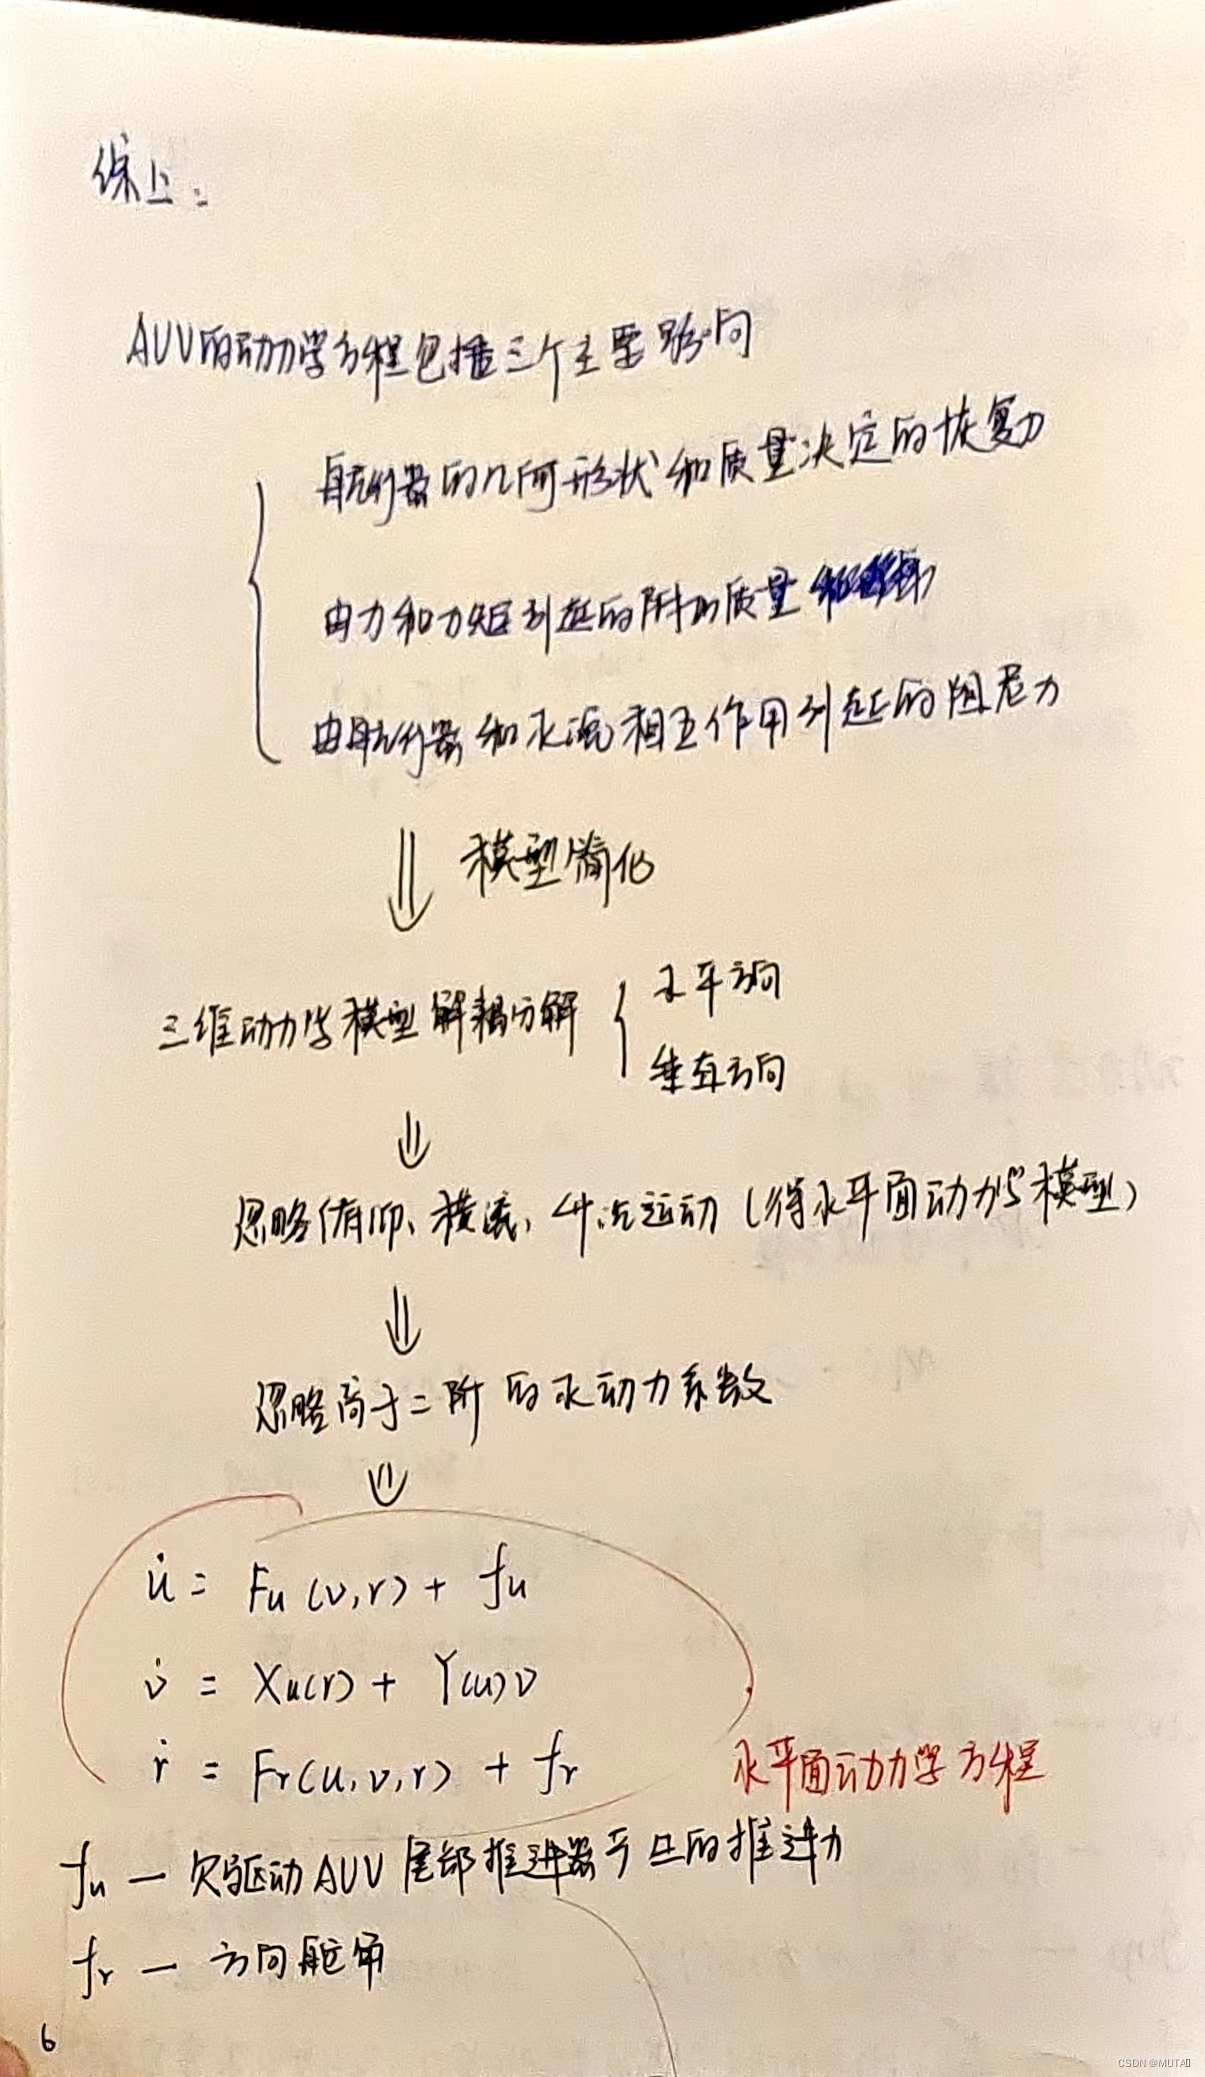 综上:
AUV的动力学方程包括三个主要影响
航行器的几何形状和质量决定的恢复力
由力和力矩引起的附加质量
由航行器和水流相互作用引起的阻尼力
⇓ 模型简化
三维动力学模型解耦分解 { 水平方向
垂直方向
⇓
忽略俯仰、横滚、升沉运动(得水平面动力学模型)
⇓
忽略高于二阶的水动力系数
⇓
u̇ = Fu(v,r) + fu
v̇ = Xu(r) + Y(u)v
ṙ = Fr(u,v,r) + fr
水平面动力学方程
fu — 欠驱动AUV尾部推进器产生的推进力
fr — 方向舵角
6
CSDN @MUTA